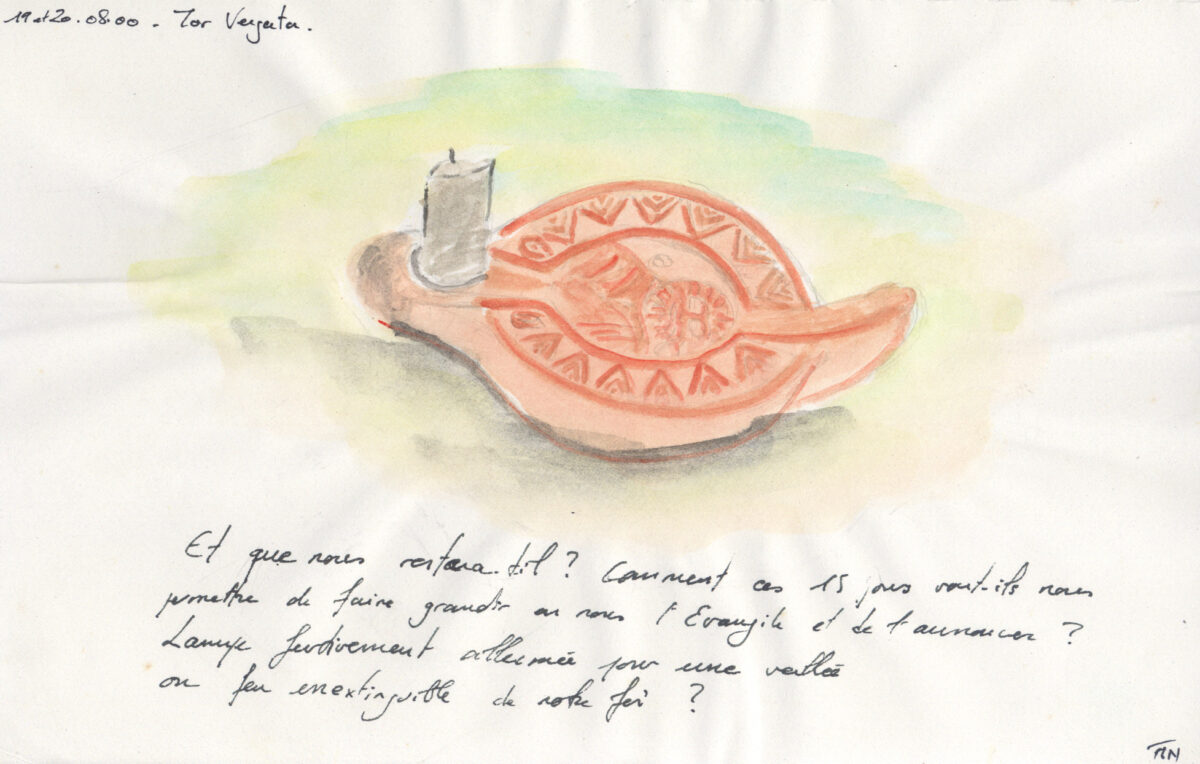 19 et 20.08.00 - Tor Vergata.
Et que nous restera-t-il ? Comment ces 15 jours vont-ils nous
permettre de faire grandir en nous l'Evangile et de l'annoncer ?
Lampe furtivement allumée pour une veillée
ou feu inextinguible de notre foi ?
MN